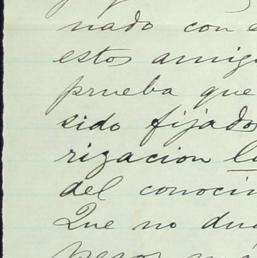 nado con e
estos amig
prueba que
sido fijado
rizacion l
del conoci
Que no du